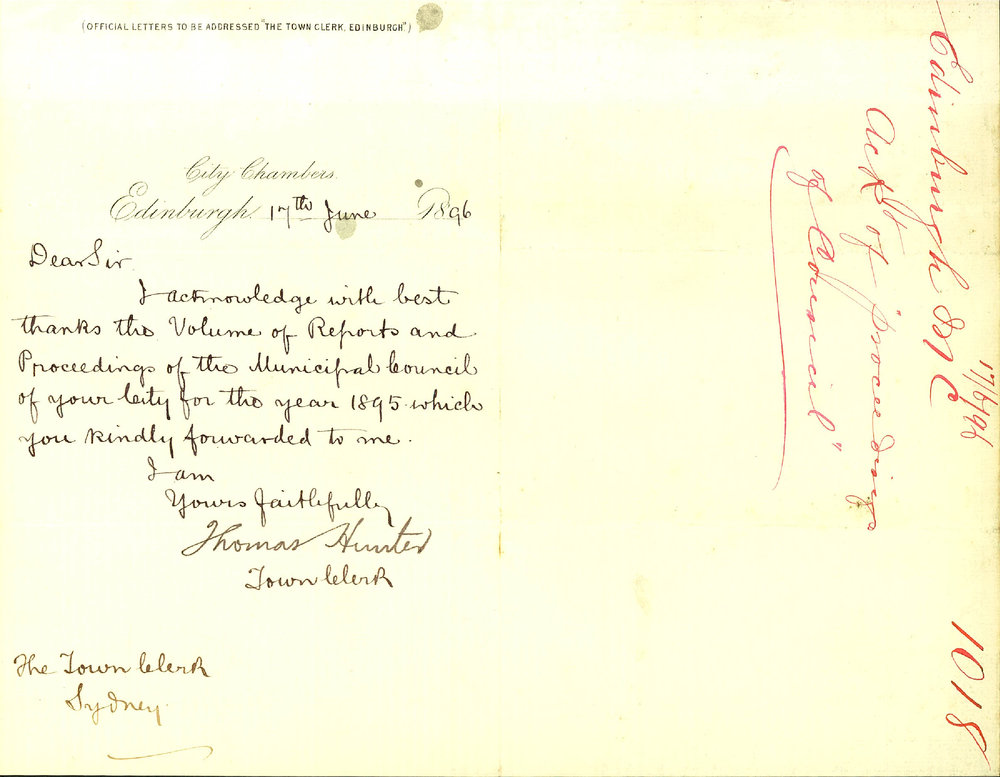 (OFFICIAL LETTERS TO BE ADDRESSED "THE TOWN CLERK, EDINBURGH")
City Chambers.
Edinburgh, 17th June 1896
Dear Sir
I acknowledge with best
thanks the Volume of Reports and
Proceedings of the Municipal Council
of your City for the year 1895 which
you kindly forwarded to me.
I am
Yours faithfully
Thomas Hunter
Town Clerk
The Town Clerk
Sydney.
Edinburgh M C
17/6/96
Ackt of "Proceedings
of Council"
1018